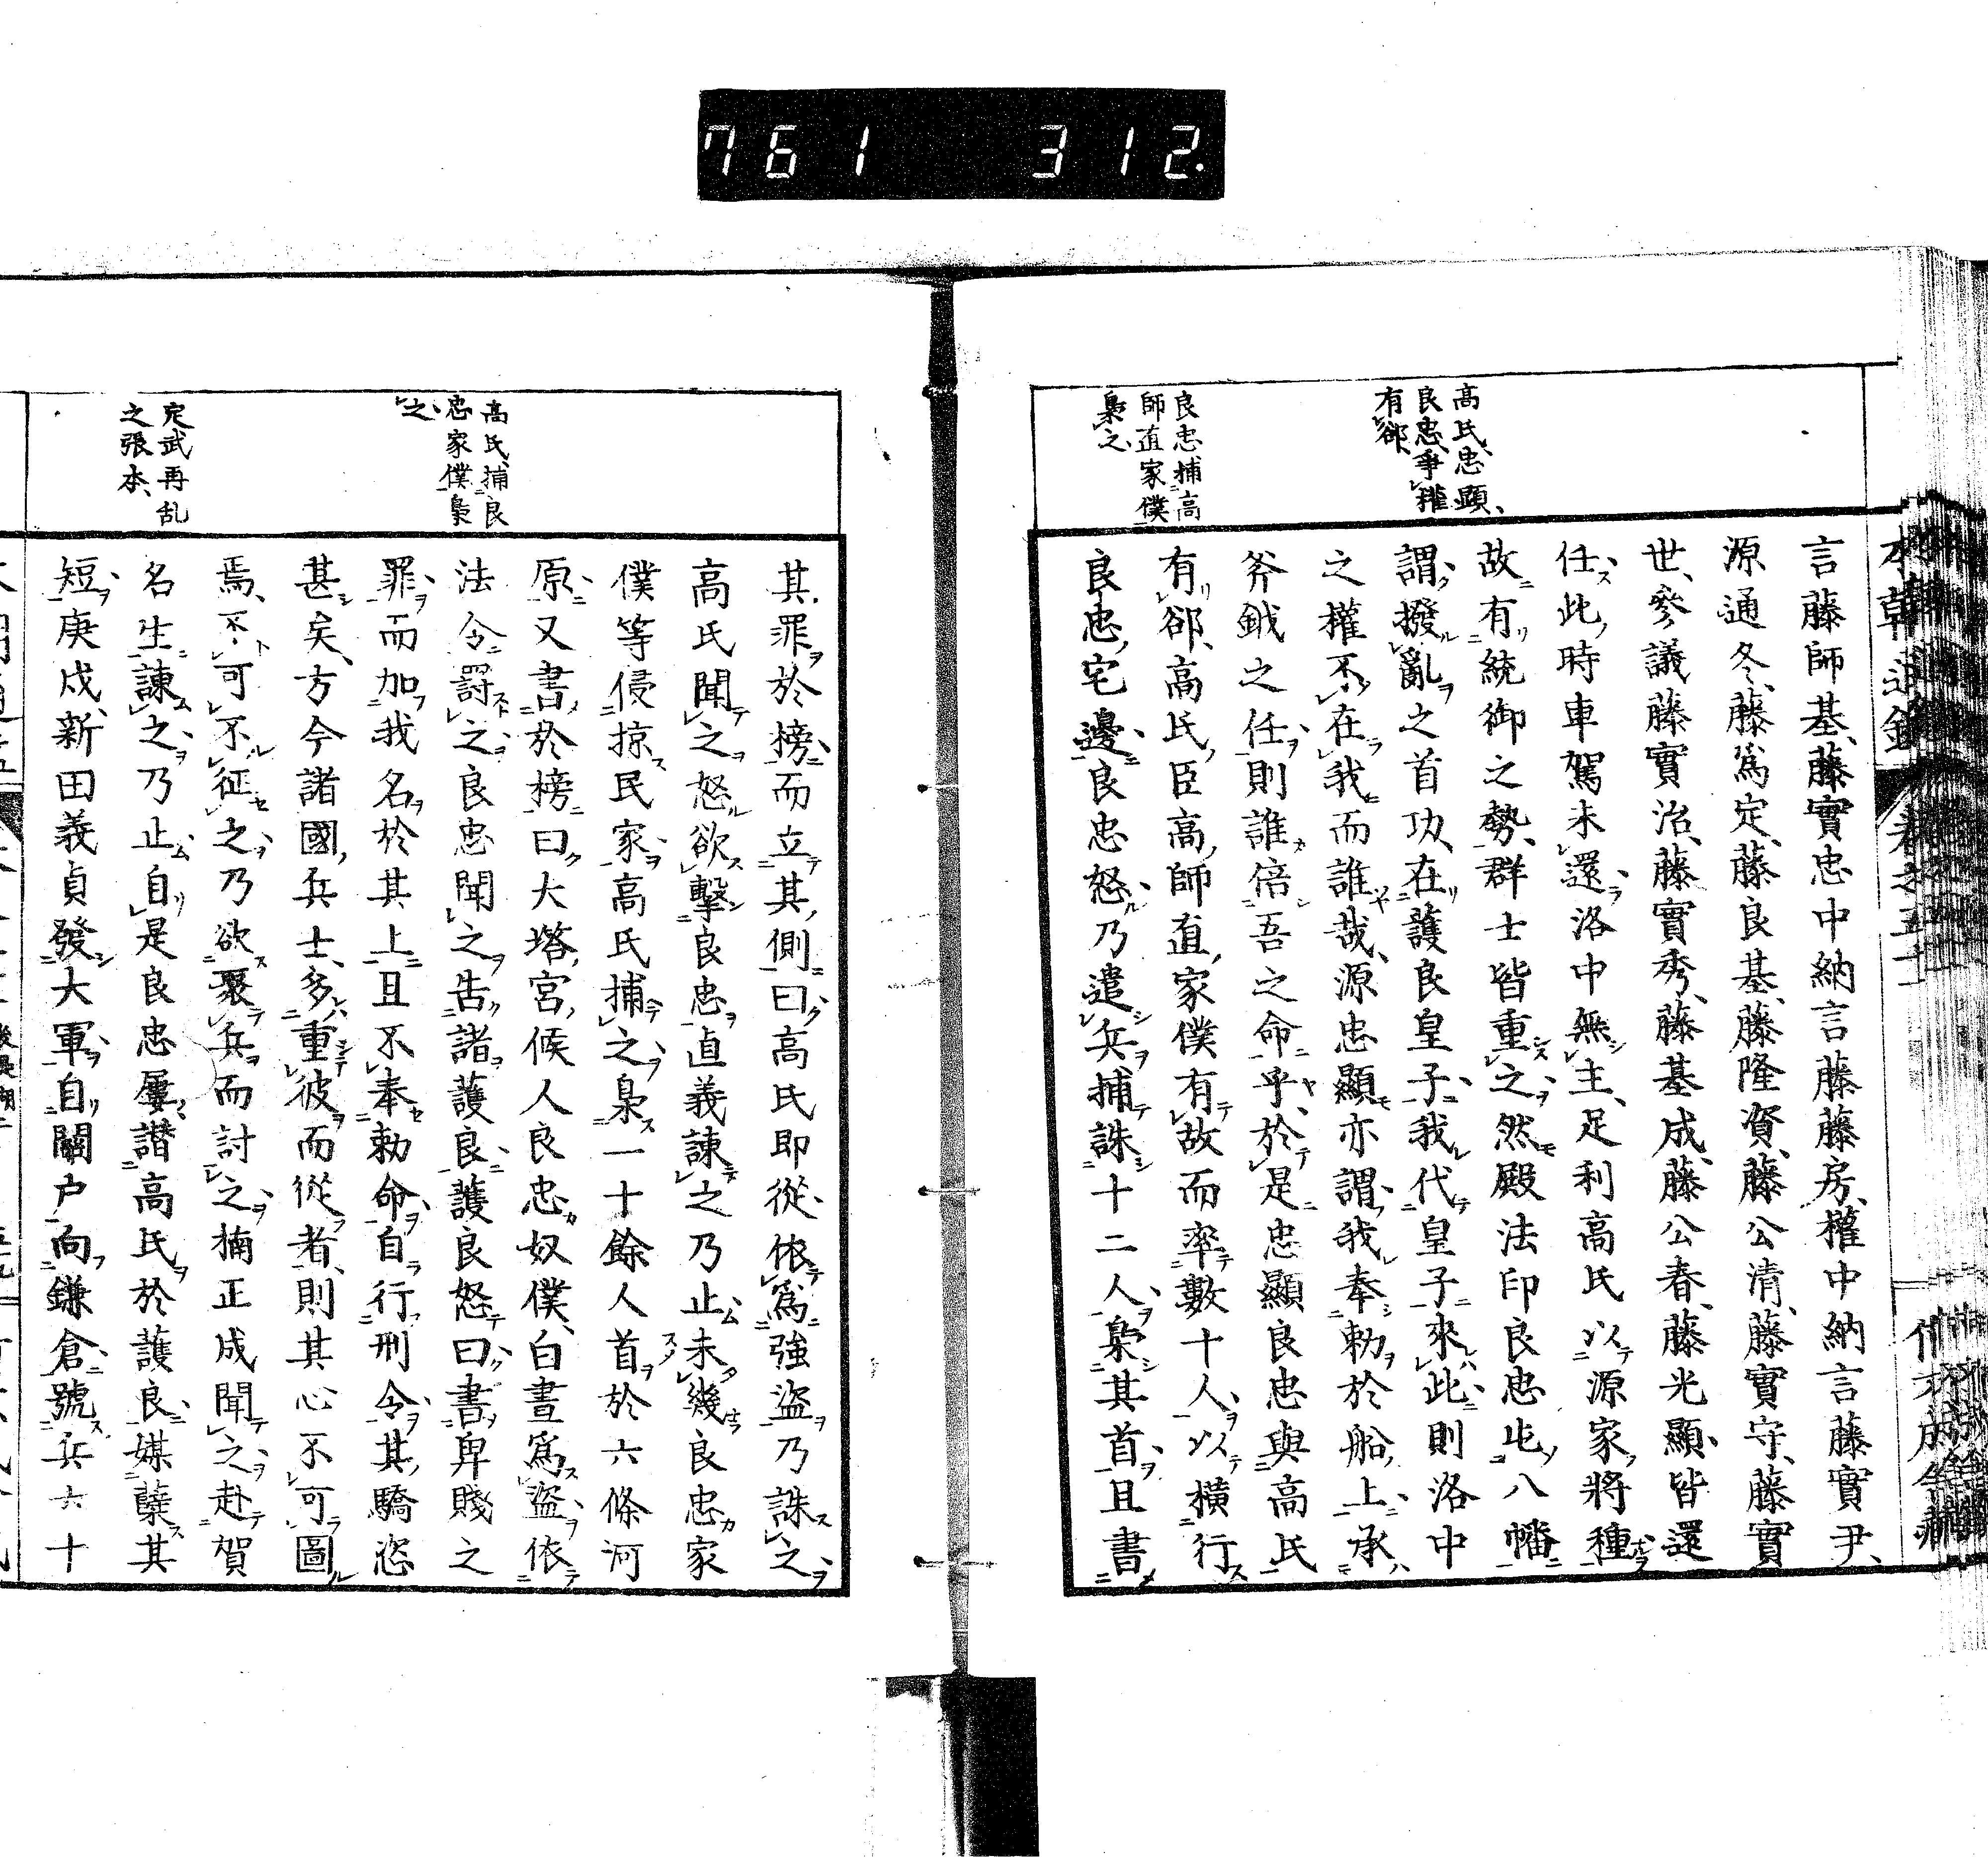 761 312.
高氏、忠顯、
良忠爭權
有郤
良忠捕高
師直家僕
梟之
言藤師基、藤實忠中納言藤藤房、權中納言藤實尹、
源通冬、藤爲定、藤良基、藤隆資、藤公清、藤實守、藤實
世、參議藤實治、藤實秀、藤基成、藤公春、藤光顯、皆還
任、此時車駕未還洛中無主、足利高氏以源家將種
故有統御之勢、群士皆重之、然殿法印良忠屯八幡
謂撥亂之首功、在護良皇子、我代皇子來此則洛中
之權不在我而誰哉、源忠顯亦謂我奉勅於船上承
斧鉞之任、則誰倍吾之命乎、於是忠顯良忠與高氏
有郤、高氏臣高師直家僕有故而率數十人以橫行
良忠宅邊、良忠怒乃遣兵捕誅十二人、梟其首、且書
高氏捕良
忠家僕梟
之
定武再乱
之張本、
其罪於榜而立其側曰高氏即從依爲強盜乃誅之、
高氏聞之怒欲擊良忠直義諫之乃止未幾良忠家
僕等侵掠民家高氏捕之梟一十餘人首於六條河
原又書於榜曰大塔宮候人良忠奴僕、白晝爲盜依
法令罸之、良忠聞之告諸護良護良怒曰書卑賤之
罪而加我名於其上且不奉勅命自行刑令其驕恣
甚矣、方今諸國兵士多重彼而從者、則其心不可圖
焉、不可不征之乃欲聚兵而討之楠正成聞之赴賀
名生諫之乃止自是良忠屢譖高氏於護良媒蘖其
短、庚戌、新田義貞發大軍自關戶向鎌倉號兵六十